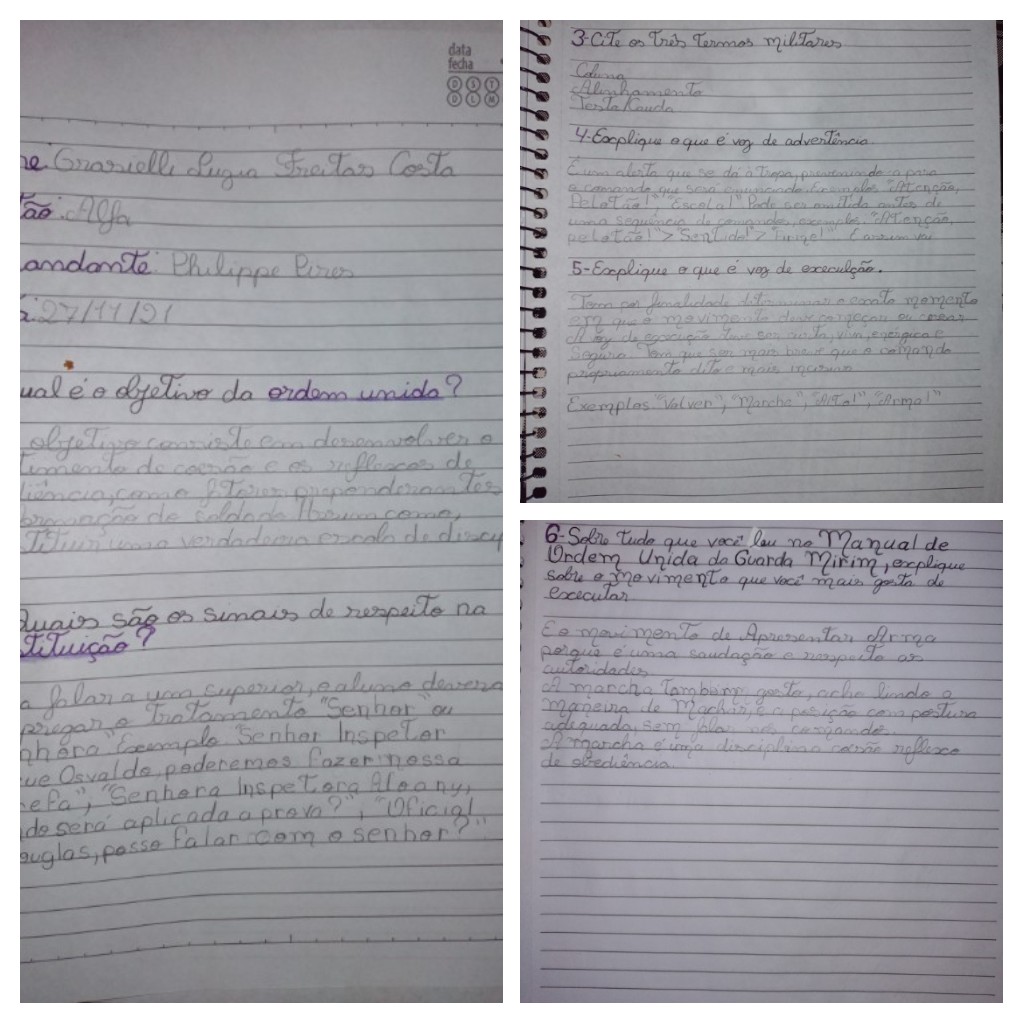 data
fecha
D S T
D L M
e: Grazielle Luzia Freitas Costa
tão: Alfa
andante: Philippe Pires
a: 27/11/21
ual é o objetivo da ordem unida?
objetivo consiste em desenvolver o
timento de coesão e os reflexos de
iência, como fatores preponderantes
ormação do soldado
titui uma verdadeira escola de discip
Quais são os sinais de respeito na
tituição?
a falar a um superior, o aluno deverá
pregar o tratamento "Senhor" ou
nhora" Exemplo Senhor Inspetor
ue Osvaldo, poderemos fazer nossa
efa", "Senhora Inspetora Aloany,
do será aplicada a prova?", "Oficial
ouglas, posso falar com o senhor?"
3-Cite os três termos militares
Coluna
Alinhamento
Testa/Cauda
4-Explique o que é voz de advertência.
É um alerta que se dá à tropa, prevenindo a para
o comando que será enunciado. Exemplos "Atenção,
Pelotão!" "Escola!" Pode ser omitida antes de
uma sequência de comandos, exemplos. "Atenção,
pelotão!" > "Sentido!" > "Firme!" E assim vai
5-Explique o que é voz de execulção.
Tem por finalidade determinar o exato momento
em que o movimento deve começar ou cessar
A voz de execução deve ser curta, viva, enérgica e
segura. Tem que ser mais breve que o comando
propriamente dito e mais incisiva
Exemplos "Volver", "Marche", "Alto!", "Arma!"
6-Sobre tudo que você leu no Manual de
Ordem Unida da Guarda Mirim, explique
sobre o movimento que você mais gosta de
executar
É o movimento de Apresentar Arma
porque é uma saudação e respeito as
autoridades
A marcha também gosto, acho lindo a
maneira de e a posição com postura
adequada, sem
A marcha é uma disciplina coesão reflexo
de obediência.